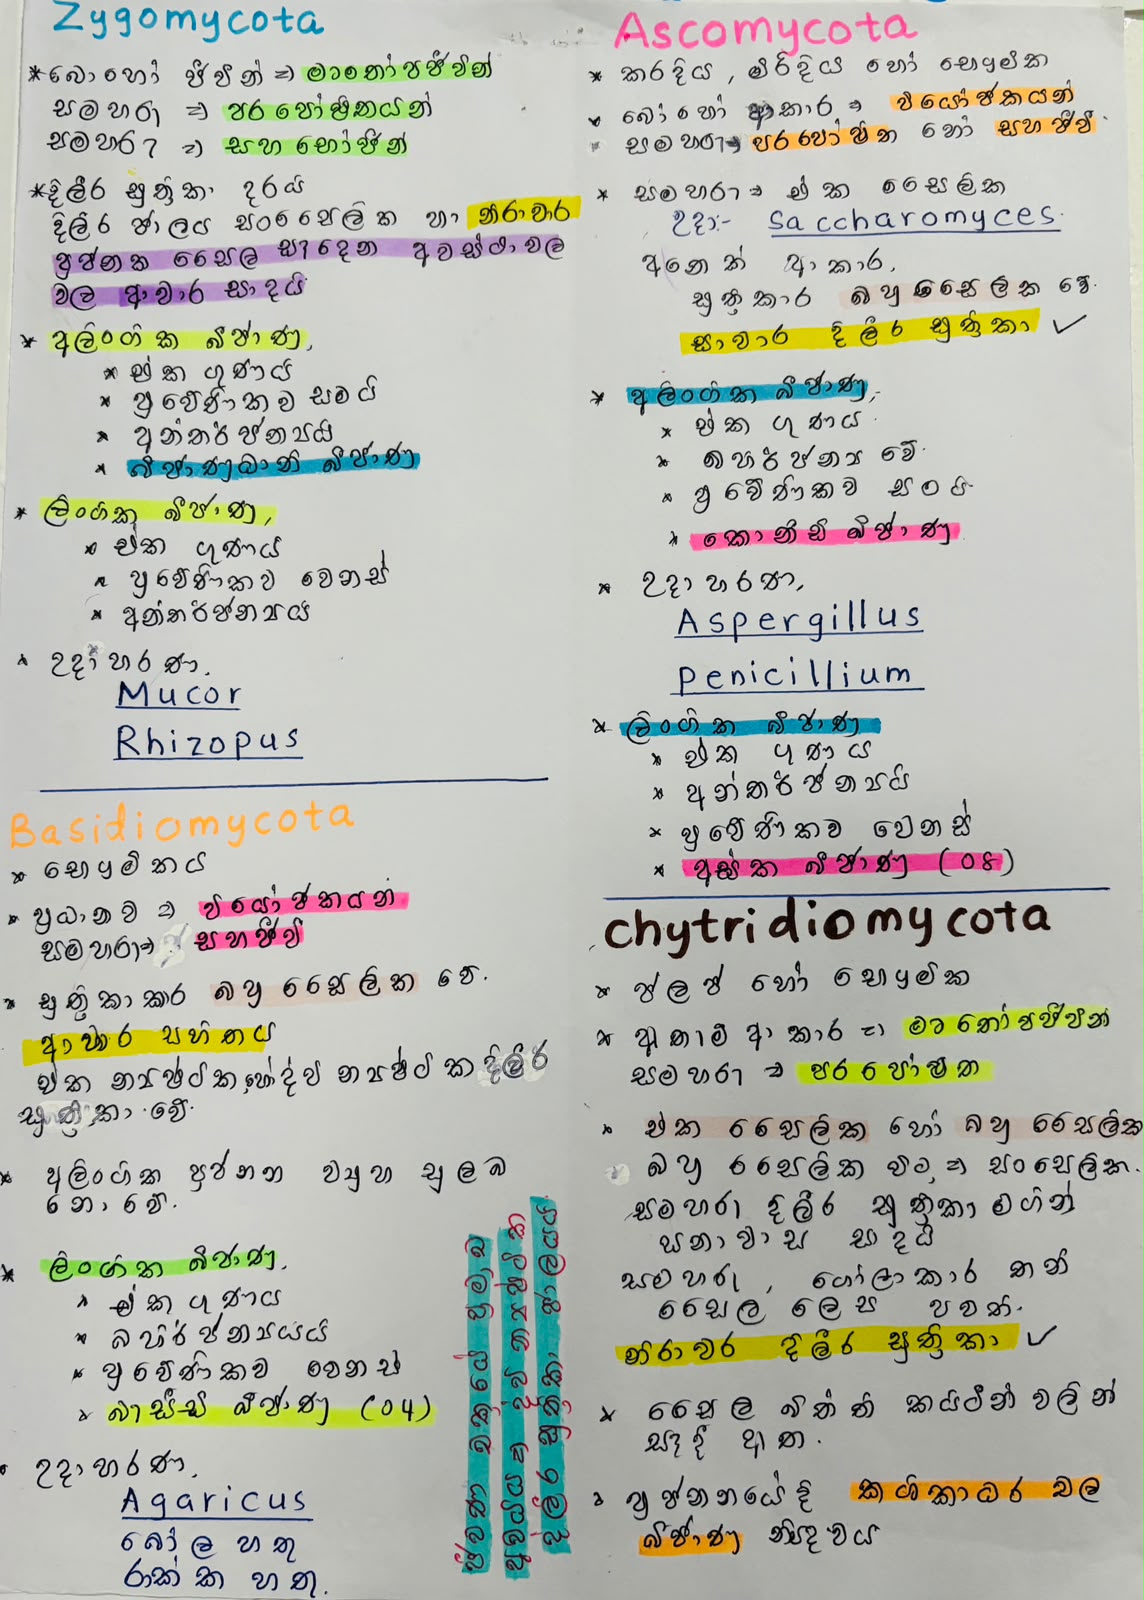 Zygomycota
* බොහෝ ජීවීන් ⇒ මෘතෝපජීවීන්
සමහරා ⇒ පරපෝෂිතයන්
සමහරා ⇒ සහභෝජීන්
* දිලීර සුත්‍රිකා දරයි
දිලීර ජාලය සංසෛලික හා නිරාවාර
ප්‍රජනක සෛල සෑදෙන අවස්ථාවල
වල ආවාර සාදයි
* අලිංගික බීජාණු,
* ඒක ගුණය
* ප්‍රවේණිකව සමයි
* අන්තර්ජන්‍යයි
* බීජාණුධානි බීජාණු
* ලිංගික බීජාණු,
* ඒක ගුණය
* ප්‍රවේණිකව වෙනස්
* අන්තර්ජන්‍යයි
* උදාහරණ.
Mucor
Rhizopus
Basidiomycota
* භෞමිකය
* ප්‍රධානව ⇒ වියෝජකයන්
සමහරා ⇒ සහජීවී
* සුත්‍රිකාකාර බහු සෛලික වේ.
ආවාර සහිතය
ඒක න්‍යෂ්ටික හෝ ද්වි න්‍යෂ්ටික දිලීර
සුත්‍රිකා වේ.
* අලිංගික ප්‍රජනන ව්‍යුහ සුලබ
නො වේ.
* ලිංගික බීජාණු.
* ඒක ගුණය
* බහිර්ජන්‍යයයි
* ප්‍රවේණිකව වෙනස්
* බාසීඩි බීජාණු (04)
* උදාහරණ.
Agaricus
බෝල හතු
රාක්ක හතු.
ජීවන චක්‍රයේ ප්‍රමුඛ
අවධිය ද්වි න්‍යෂ්ටික
දිලීර සුත්‍රිකා ජාලයයි
Ascomycota
* කරදිය, මිරිදිය හෝ භෞමික
* බොහෝ ආකාර ⇒ වියෝජකයන්
* සමහරා ⇒ පරපෝෂිත හෝ සහජීවී.
* සමහරා ⇒ ඒක සෛලික
උදා:- Saccharomyces.
අනෙක් ආකාර,
සුත්‍රිකාර බහු සෛලික වේ.
සාවාර දිලීර සුත්‍රිකා ✓
* අලිංගික බීජාණු,
* ඒක ගුණය.
* බහිර්ජන්‍ය වේ.
* ප්‍රවේණිකව සමයි
* කොනිඩි බීජාණු
* උදාහරණ,
Aspergillus
Penicillium
* ලිංගික බීජාණු
* ඒක ගුණය
* අන්තර්ජන්‍යයි
* ප්‍රවේණිකව වෙනස්
* අස්ක බීජාණු (08)
chytridiomycota
* ජලජ හෝ භෞමික
* ඇතැම් ආකාර ⇒ මෘතෝපජීවීන්
සමහරා ⇒ පරපෝෂිත
* ඒක සෛලික හෝ බහු සෛලික
බහු සෛලික විට, ⇒ සංසෛලික.
සමහරා දිලීර සුත්‍රිකා මගින්
සනාවාස සාදයි
සමහරු, ගෝලාකාර තනි
සෛල ලෙස පවතී.
නිරාවර දිලීර සුත්‍රිකා ✓
* සෛල බිත්ති කයිටින් වලින්
සෑදී ඇත.
* ප්‍රජනනයේදී කශිකාධර චල
බීජාණු නිපදවය